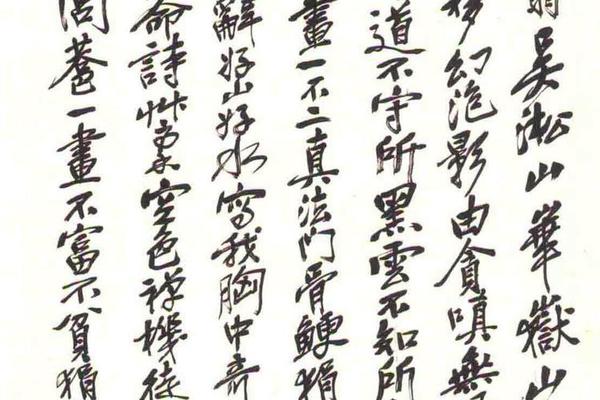 吳淞山華嶽山
夢幻泡影由貪嗔無
道不守所黑雲不知所
畫一不二真法門骨鯁狷
辭好山好水寫我胸中奇
命詩艸稾空色禪機徒
菴一畫不富不貧狷